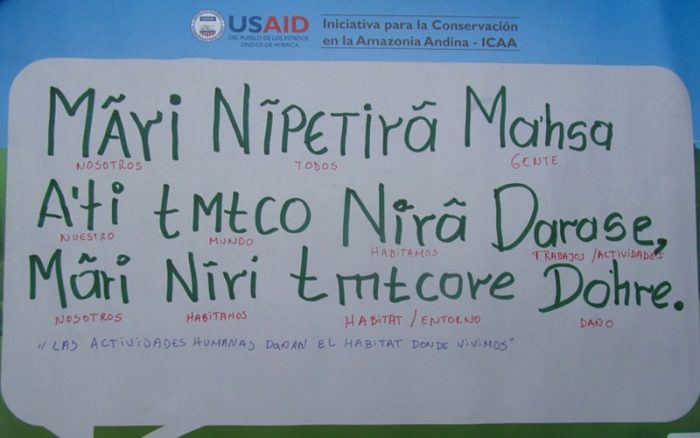 USAID
DEL PUEBLO DE LOS ESTADOS
UNIDOS DE AMÉRICA
Iniciativa para la Conservación
en la Amazonía Andina - ICAA
Mãri Nĩpetirã Ma'hsa
NOSOTROS TODOS GENTE
A'ti tmtco Nirã Darase,
NUESTRO MUNDO HABITAMOS TRABAJOS/ACTIVIDADES
Mãri Nĩri tmtcore Do'hre.
NOSOTROS HABITAMOS HABITAT/ENTORNO DAÑO
"LAS ACTIVIDADES HUMANAS DAÑAN EL HABITAT DONDE VIVIMOS"